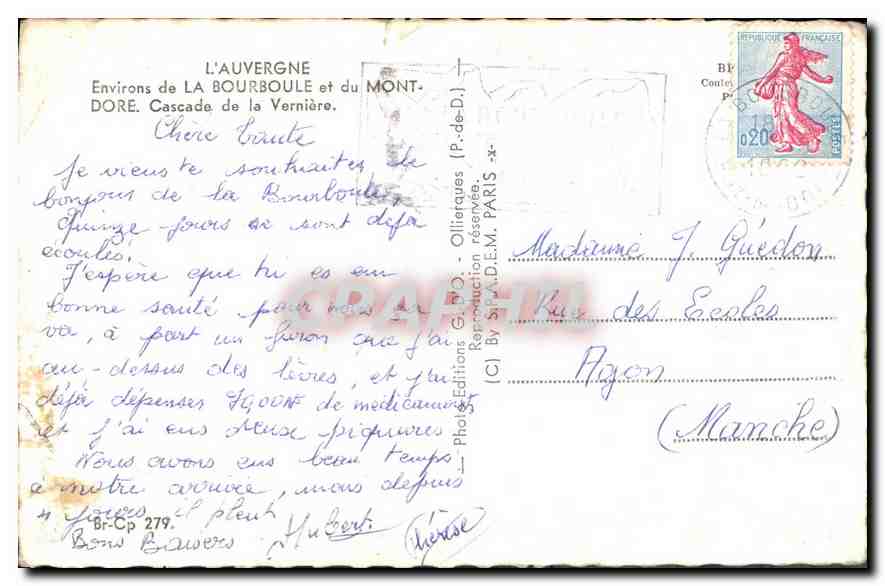 L'AUVERGNE
Environs de LA BOURBOULE et du MONT-
DORE. Cascade de la Vernière.
Chère Tante
Je viens te souhaiter le
bonjour de la Bourboule,
Quinze jours se sont déjà
écoulés.
J'espère que tu es en
bonne santé pour nous ça
va, à part un furon que j'ai
au-dessus des lèvres, et j'ai
déjà dépenses de médicaments
et j'ai eus deux piqures.
Nous avons eus beau temps
a notre arrivée, mais depuis
4 jours il pleut
Br-Cp 279.
Bons Baisers Hubert Thérèse
Photo-Editions G. D'O. - Ollierques (P.-de-D.)
Reproduction réservée.
(C) By S.P.A.D.E.M. PARIS -x-
REPUBLIQUE FRANÇAISE
0,20
POSTES
Madame J. Guédon
Rue des Ecoles
Agon
(Manche)
CPAPHIL